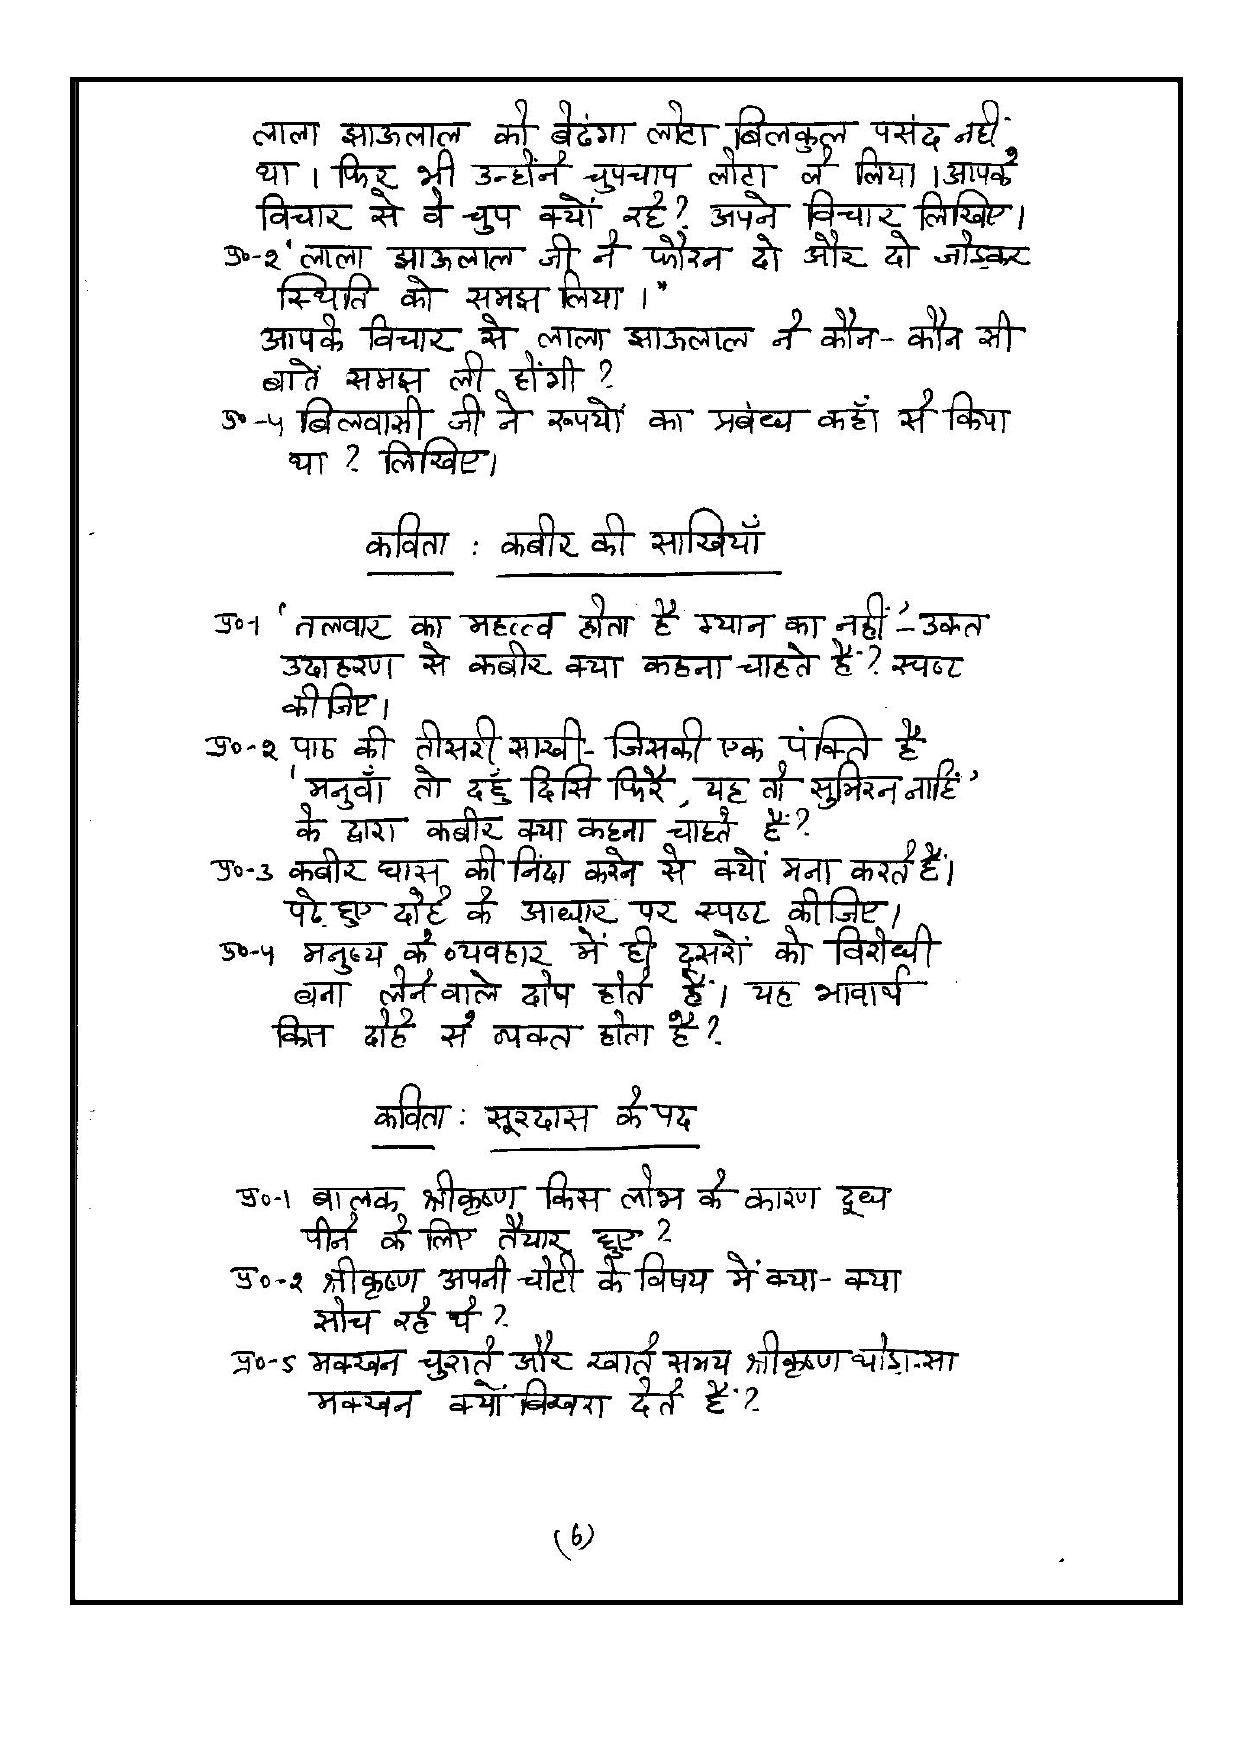 लाला झाऊलाल को बेढंगा लोटा बिलकुल पसंद नहीं
था । फिर भी उन्होंने चुपचाप लोटा ले लिया । आपके
विचार से वे चुप क्यों रहे ? अपने विचार लिखिए ।
प्र०-२ 'लाला झाऊलाल जी ने फौरन दो और दो जोड़कर
स्थिति को समझ लिया ।"
आपके विचार से लाला झाऊलाल ने कौन-कौन सी
बातें समझ ली होंगी ?
प्र०-५ बिलवासी जी ने रूपयों का प्रबंध कहाँ से किया
था ? लिखिए ।
कविता : कबीर की साखियाँ
प्र०-१ 'तलवार का महत्त्व होता है म्यान का नहीं' - उक्त
उदाहरण से कबीर क्या कहना चाहते हैं ? स्पष्ट
कीजिए ।
प्र०-२ पाठ की तीसरी साखी - जिसकी एक पंक्ति है
'मनुवाँ तो दहुँ दिसि फिरै, यह तो सुमिरन नाहिं'
के द्वारा कबीर क्या कहना चाहते हैं ?
प्र०-3 कबीर घास की निंदा करने से क्यों मना करते हैं ।
पढ़े हुए दोहे के आधार पर स्पष्ट कीजिए ।
प्र०-५ मनुष्य के व्यवहार में ही दूसरों को विरोधी
बना लेने वाले दोष होते हैं । यह भावार्थ
किस दोहे से व्यक्त होता है ?
कविता : सूरदास के पद
प्र०-१ बालक श्रीकृष्ण किस लोभ के कारण दूध
पीने के लिए तैयार हुए ?
प्र०-२ श्रीकृष्ण अपनी चोटी के विषय में क्या-क्या
सोच रहे थे ?
प्र०-5 मक्खन चुराते और खाते समय श्रीकृष्ण थोड़ा-सा
मक्खन क्यों बिखरा देते हैं ?
(6)